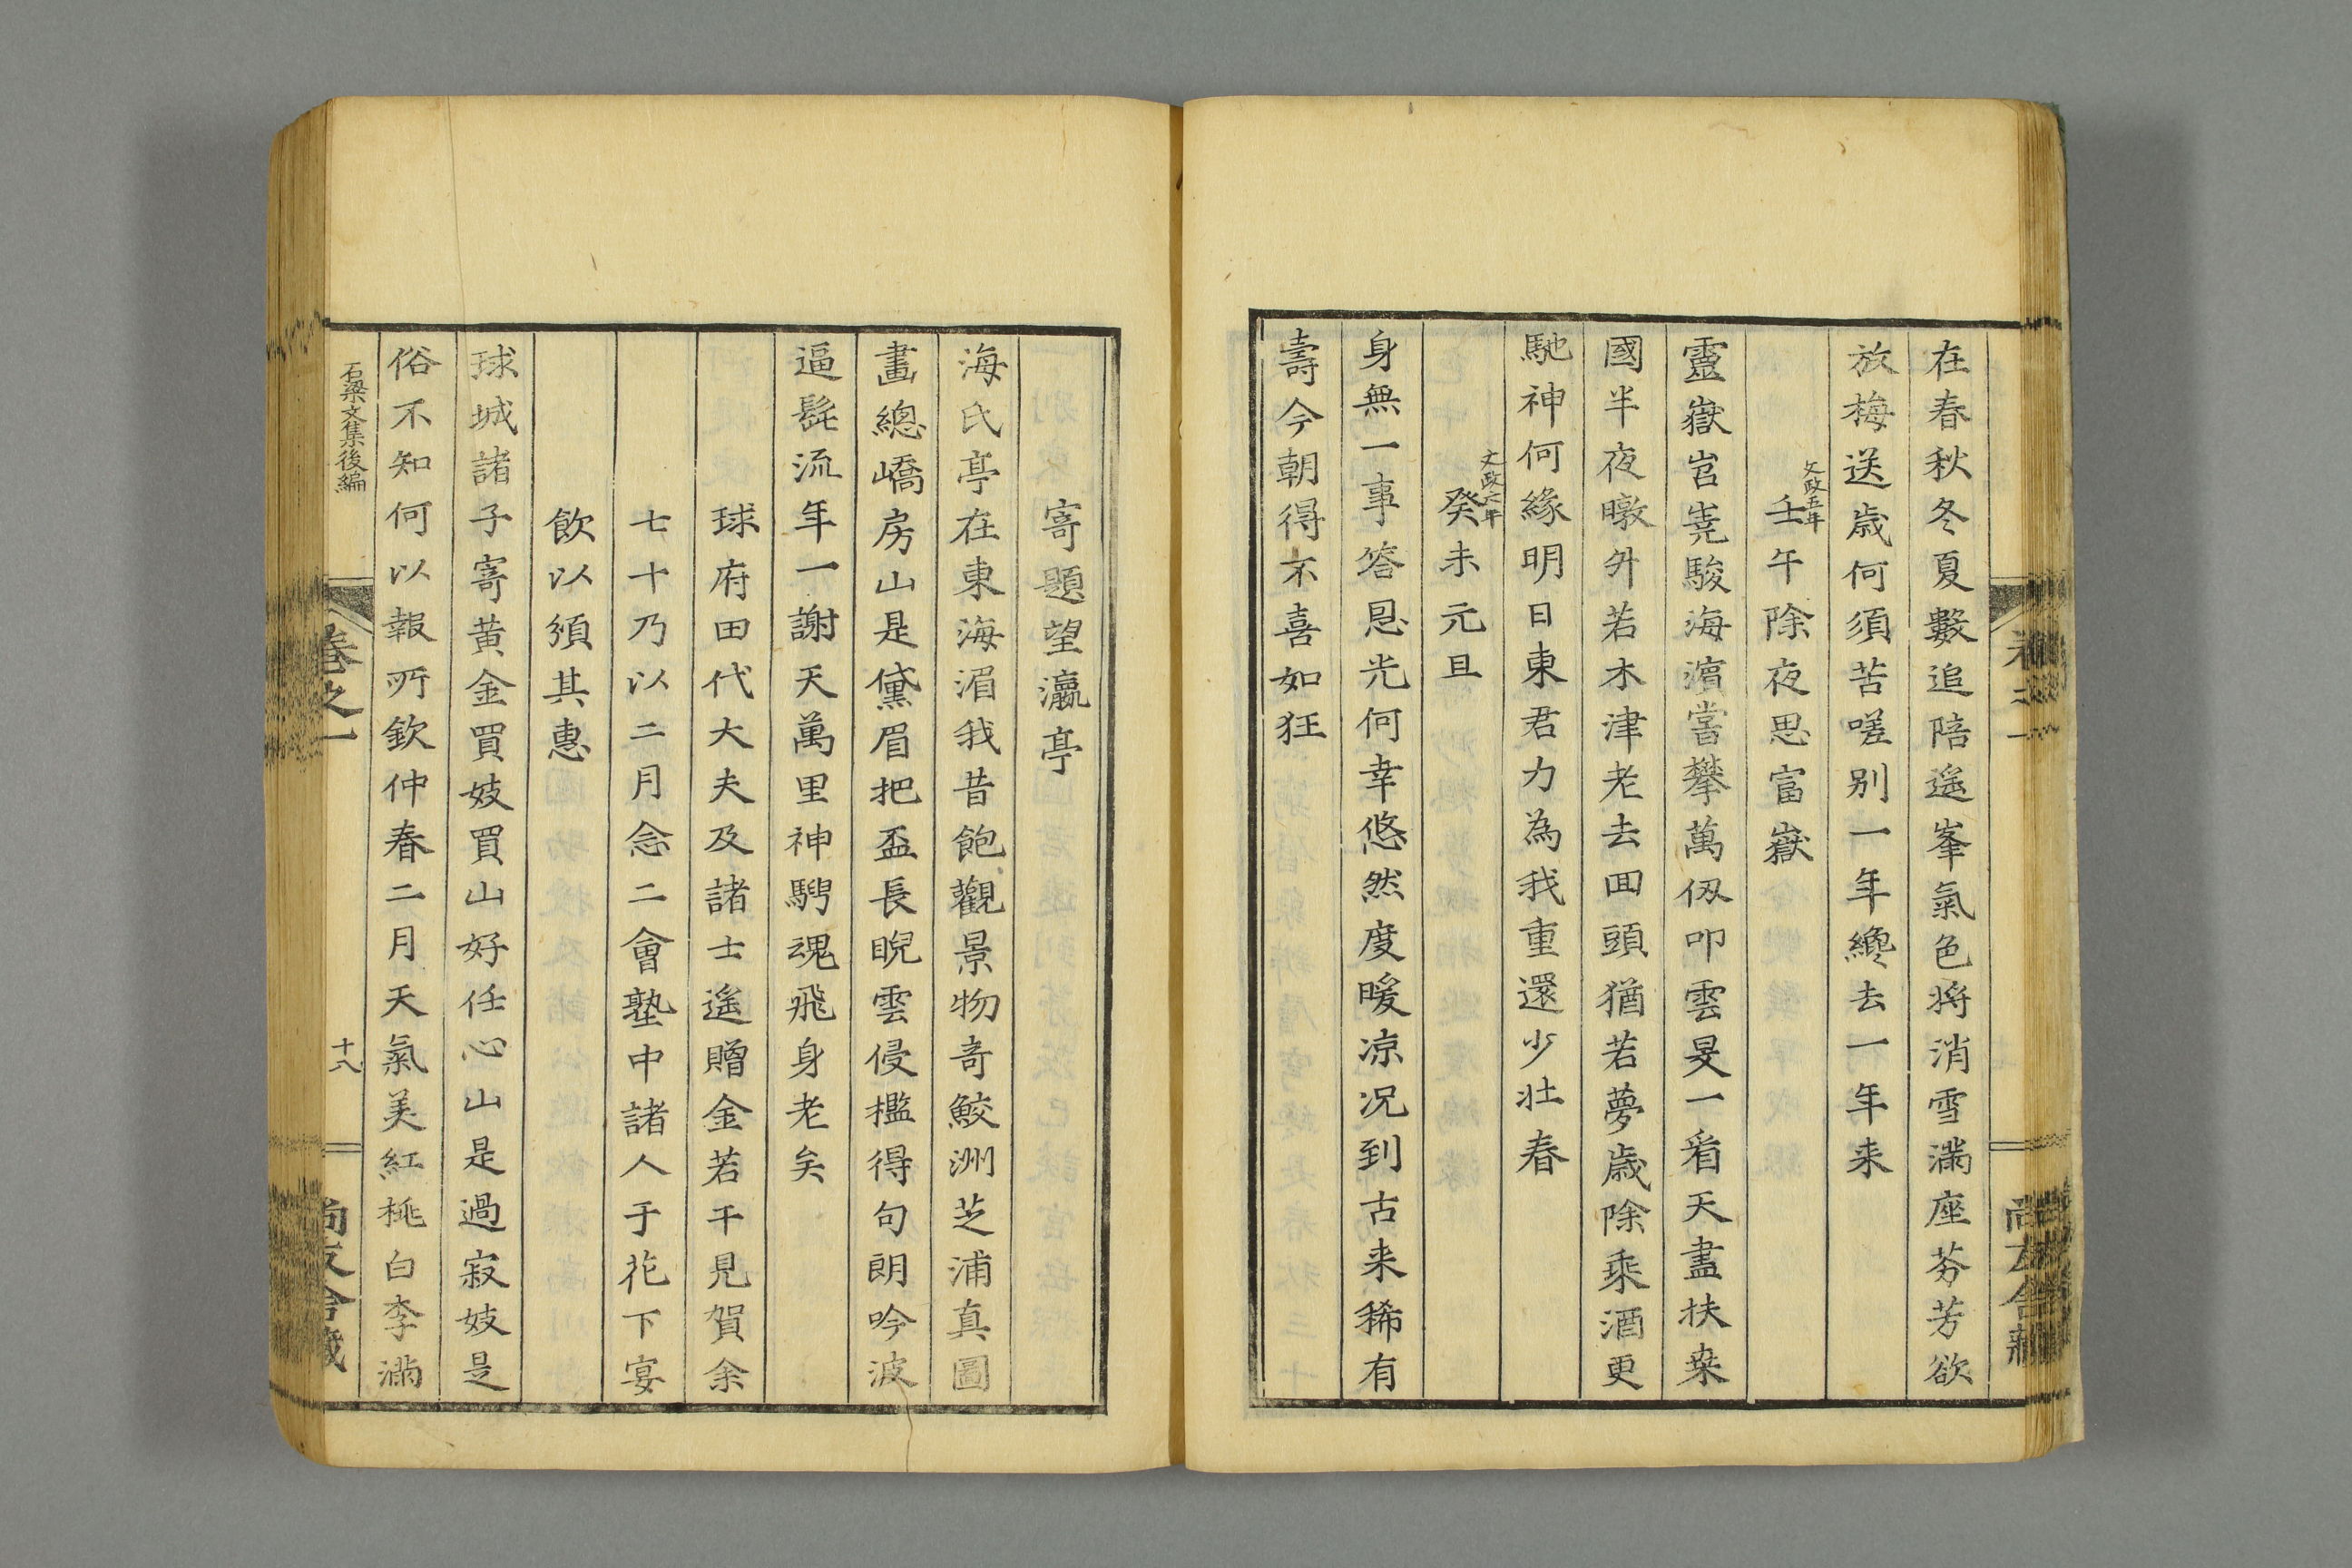 在春秋冬夏數追陪遙峯氣色將消雪滿座芬芳欲
放梅送歳何須苦嗟别一年纔去一年来
文政五年
壬午除夜思富嶽
靈嶽岧嶤駿海濵嘗攀萬仭叩雲旻一看天盡扶桒
國半夜暾舛若木津老去囬頭猶若夢歳除乘酒更
馳神何緣明日東君力為我重還少壯春
文政六年
癸未元旦
身無一事答恩光何幸悠然度暖凉况到古来稀有
壽今朝得不喜如狂
寄題望瀛亭
海氏亭在東海湄我昔飽觀景物奇鮫洲芝浦真圖
畫總嶠房山是黛眉把盃長睨雲侵檻得句朗吟波
逼髭流年一謝天萬里神騁魂飛身老矣
球府田代大夫及諸士遙贈金若干見賀余
七十乃以二月念二會塾中諸人于花下宴
飲以須其惠
球城諸子寄黄金買妓買山好任心山是過寂妓是
俗不知何以報所欽仲春二月天氣美紅桃白李滿
石梁文集後編
卷之一
十八
尚友舍藏